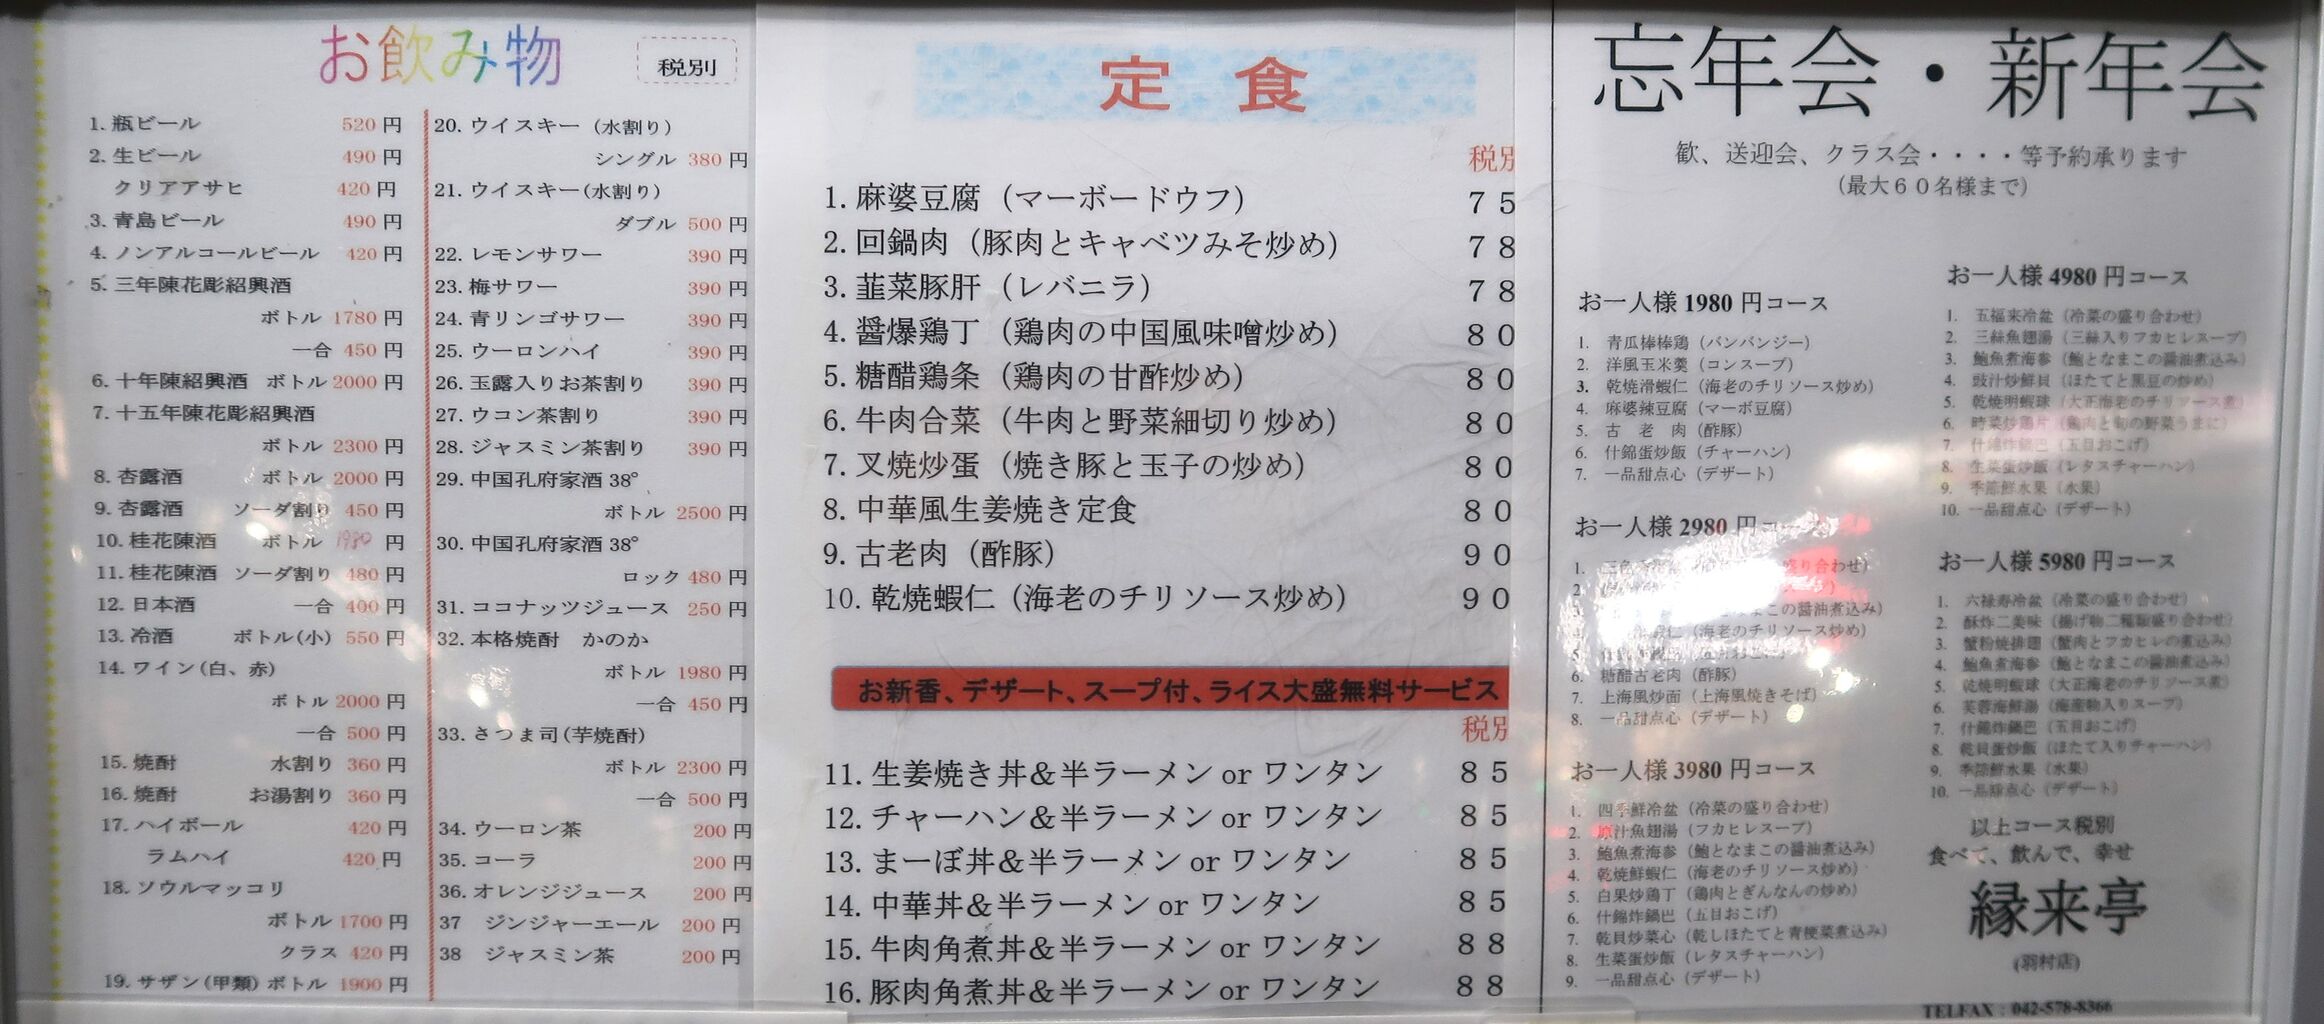 お飲み物
税別
1. 瓶ビール 520 円
2. 生ビール 490 円
クリアアサヒ 420 円
3. 青島ビール 490 円
4. ノンアルコールビール 420 円
5. 三年陳花彫紹興酒
ボトル 1780 円
一合 450 円
6. 十年陳紹興酒 ボトル 2000 円
7. 十五年陳花彫紹興酒
ボトル 2300 円
8. 杏露酒 ボトル 2000 円
9. 杏露酒 ソーダ割り 450 円
10. 桂花陳酒 ボトル 1980 円
11. 桂花陳酒 ソーダ割り 480 円
12. 日本酒 一合 400 円
13. 冷酒 ボトル(小) 550 円
14. ワイン(白、赤)
ボトル 2000 円
一合 500 円
15. 焼酎 水割り 360 円
16. 焼酎 お湯割り 360 円
17. ハイボール 420 円
ラムハイ 420 円
18. ソウルマッコリ
ボトル 1700 円
クラス 420 円
19. サザン(甲類) ボトル 1900 円
20. ウイスキー (水割り)
シングル 380 円
21. ウイスキー(水割り)
ダブル 500 円
22. レモンサワー 390 円
23. 梅サワー 390 円
24. 青リンゴサワー 390 円
25. ウーロンハイ 390 円
26. 玉露入りお茶割り 390 円
27. ウコン茶割り 390 円
28. ジャスミン茶割り 390 円
29. 中国孔府家酒 38°
ボトル 2500 円
30. 中国孔府家酒 38°
ロック 480 円
31. ココナッツジュース 250 円
32. 本格焼酎 かのか
ボトル 1980 円
一合 450 円
33. さつま司(芋焼酎)
ボトル 2300 円
一合 500 円
34. ウーロン茶 200 円
35. コーラ 200 円
36. オレンジジュース 200 円
37 ジンジャーエール 200 円
38 ジャスミン茶 200 円
定 食
税別
1. 麻婆豆腐（マーボードウフ） 75
2. 回鍋肉（豚肉とキャベツみそ炒め） 78
3. 韮菜豚肝（レバニラ） 78
4. 醤爆鶏丁（鶏肉の中国風味噌炒め） 80
5. 糖醋鶏条（鶏肉の甘酢炒め） 80
6. 牛肉合菜（牛肉と野菜細切り炒め） 80
7. 叉焼炒蛋（焼き豚と玉子の炒め） 80
8. 中華風生姜焼き定食 80
9. 古老肉（酢豚） 90
10. 乾焼蝦仁（海老のチリソース炒め） 90
お新香、デザート、スープ付、ライス大盛無料サービス
税別
11. 生姜焼き丼＆半ラーメン or ワンタン 85
12. チャーハン＆半ラーメン or ワンタン 85
13. まーぼ丼＆半ラーメン or ワンタン 85
14. 中華丼＆半ラーメン or ワンタン 85
15. 牛肉角煮丼＆半ラーメン or ワンタン 88
16. 豚肉角煮丼＆半ラーメン or ワンタン 88
忘年会・新年会
歓、送迎会、クラス会・・・・等予約承ります
(最大６０名様まで)
お一人様 1980 円コース
1. 青瓜棒棒鶏（バンバンジー）
2. 洋風玉米羹（コンスープ）
3. 乾焼滑蝦仁（海老のチリソース炒め）
4. 麻婆辣豆腐（マーボ豆腐）
5. 古 老 肉（酢豚）
6. 什錦蛋炒飯（チャーハン）
7. 一品甜点心（デザート）
お一人様 2980 円コース
1. 盛り合わせ）
2.
まこの醤油煮込み）
仁（海老のチリソース炒め）
5.
6. 糖醋古老肉（酢豚）
7. 上海風炒面（上海風焼きそば）
8. 一品甜点心（デザート）
お一人様 3980 円コース
1. 四季鮮冷盆（冷菜の盛り合わせ）
2. 原汁魚翅湯（フカヒレスープ）
3. 鮑魚煮海参（鮑となまこの醤油煮込み）
4. 乾焼鮮蝦仁（海老のチリソース炒め）
5. 白果炒鶏丁（鶏肉とぎんなんの炒め）
6. 什錦炸鍋巴（五目おこげ）
7. 乾貝炒菜心（乾しほたてと青梗菜煮込み）
8. 生菜蛋炒飯（レタスチャーハン）
9. 一品甜点心（デザート）
お一人様 4980 円コース
1. 五福来冷盆（冷菜の盛り合わせ）
2. 三絲魚翅湯（三絲入りフカヒレスープ）
3. 鮑魚煮海参（鮑となまこの醤油煮込み）
4. 豉汁炒鮮貝（ほたてと黒豆の炒め）
5. 乾焼明蝦球（大正海老のチリソース煮）
6. 時菜炒鶏片（鶏肉と旬の野菜うまに）
7. 什錦炸鍋巴（五目おこげ）
8. 生菜蛋炒飯（レタスチャーハン）
9. 季節鮮水果（水果）
10. 一品甜点心（デザート）
お一人様 5980 円コース
1. 六禄寿冷盆（冷菜の盛り合わせ）
2. 酥炸二美味（揚げ物二種類盛り合わせ）
3. 蟹粉焼排翅（蟹肉とフカヒレの煮込み）
4. 鮑魚煮海参（鮑となまこの醤油煮込み）
5. 乾焼明蝦球（大正海老のチリソース煮）
6. 芙蓉海鮮湯（海産物入りスープ）
7. 什錦炸鍋巴（五目おこげ）
8. 乾貝蛋炒飯（ほたて入りチャーハン）
9. 季節鮮水果（水果）
10. 一品甜点心（デザート）
以上コース税別
食べて、飲んで、幸せ
縁来亭
(羽村店)
TELFAX : 042-578-8366